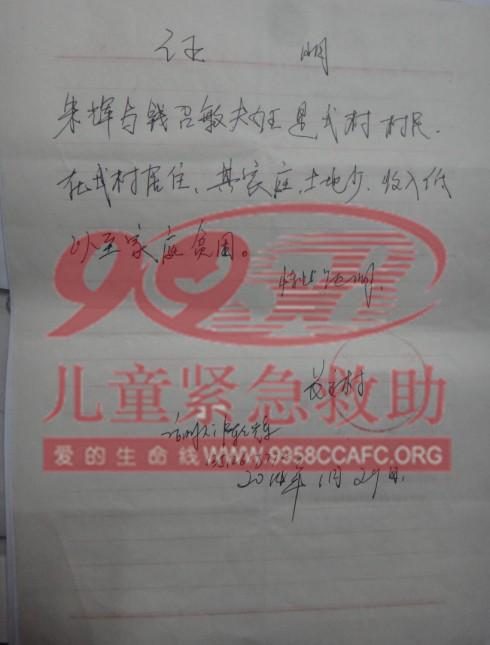 证 明
朱辉与钱召敏夫妇是我村村民.
在我村居住、其家庭.土地少.收入低
以至家庭贫困。
特此证明.
9958
儿童紧急救助
村
爱的生命线WWW.9958CCAFC.ORG
2014年1月29日.